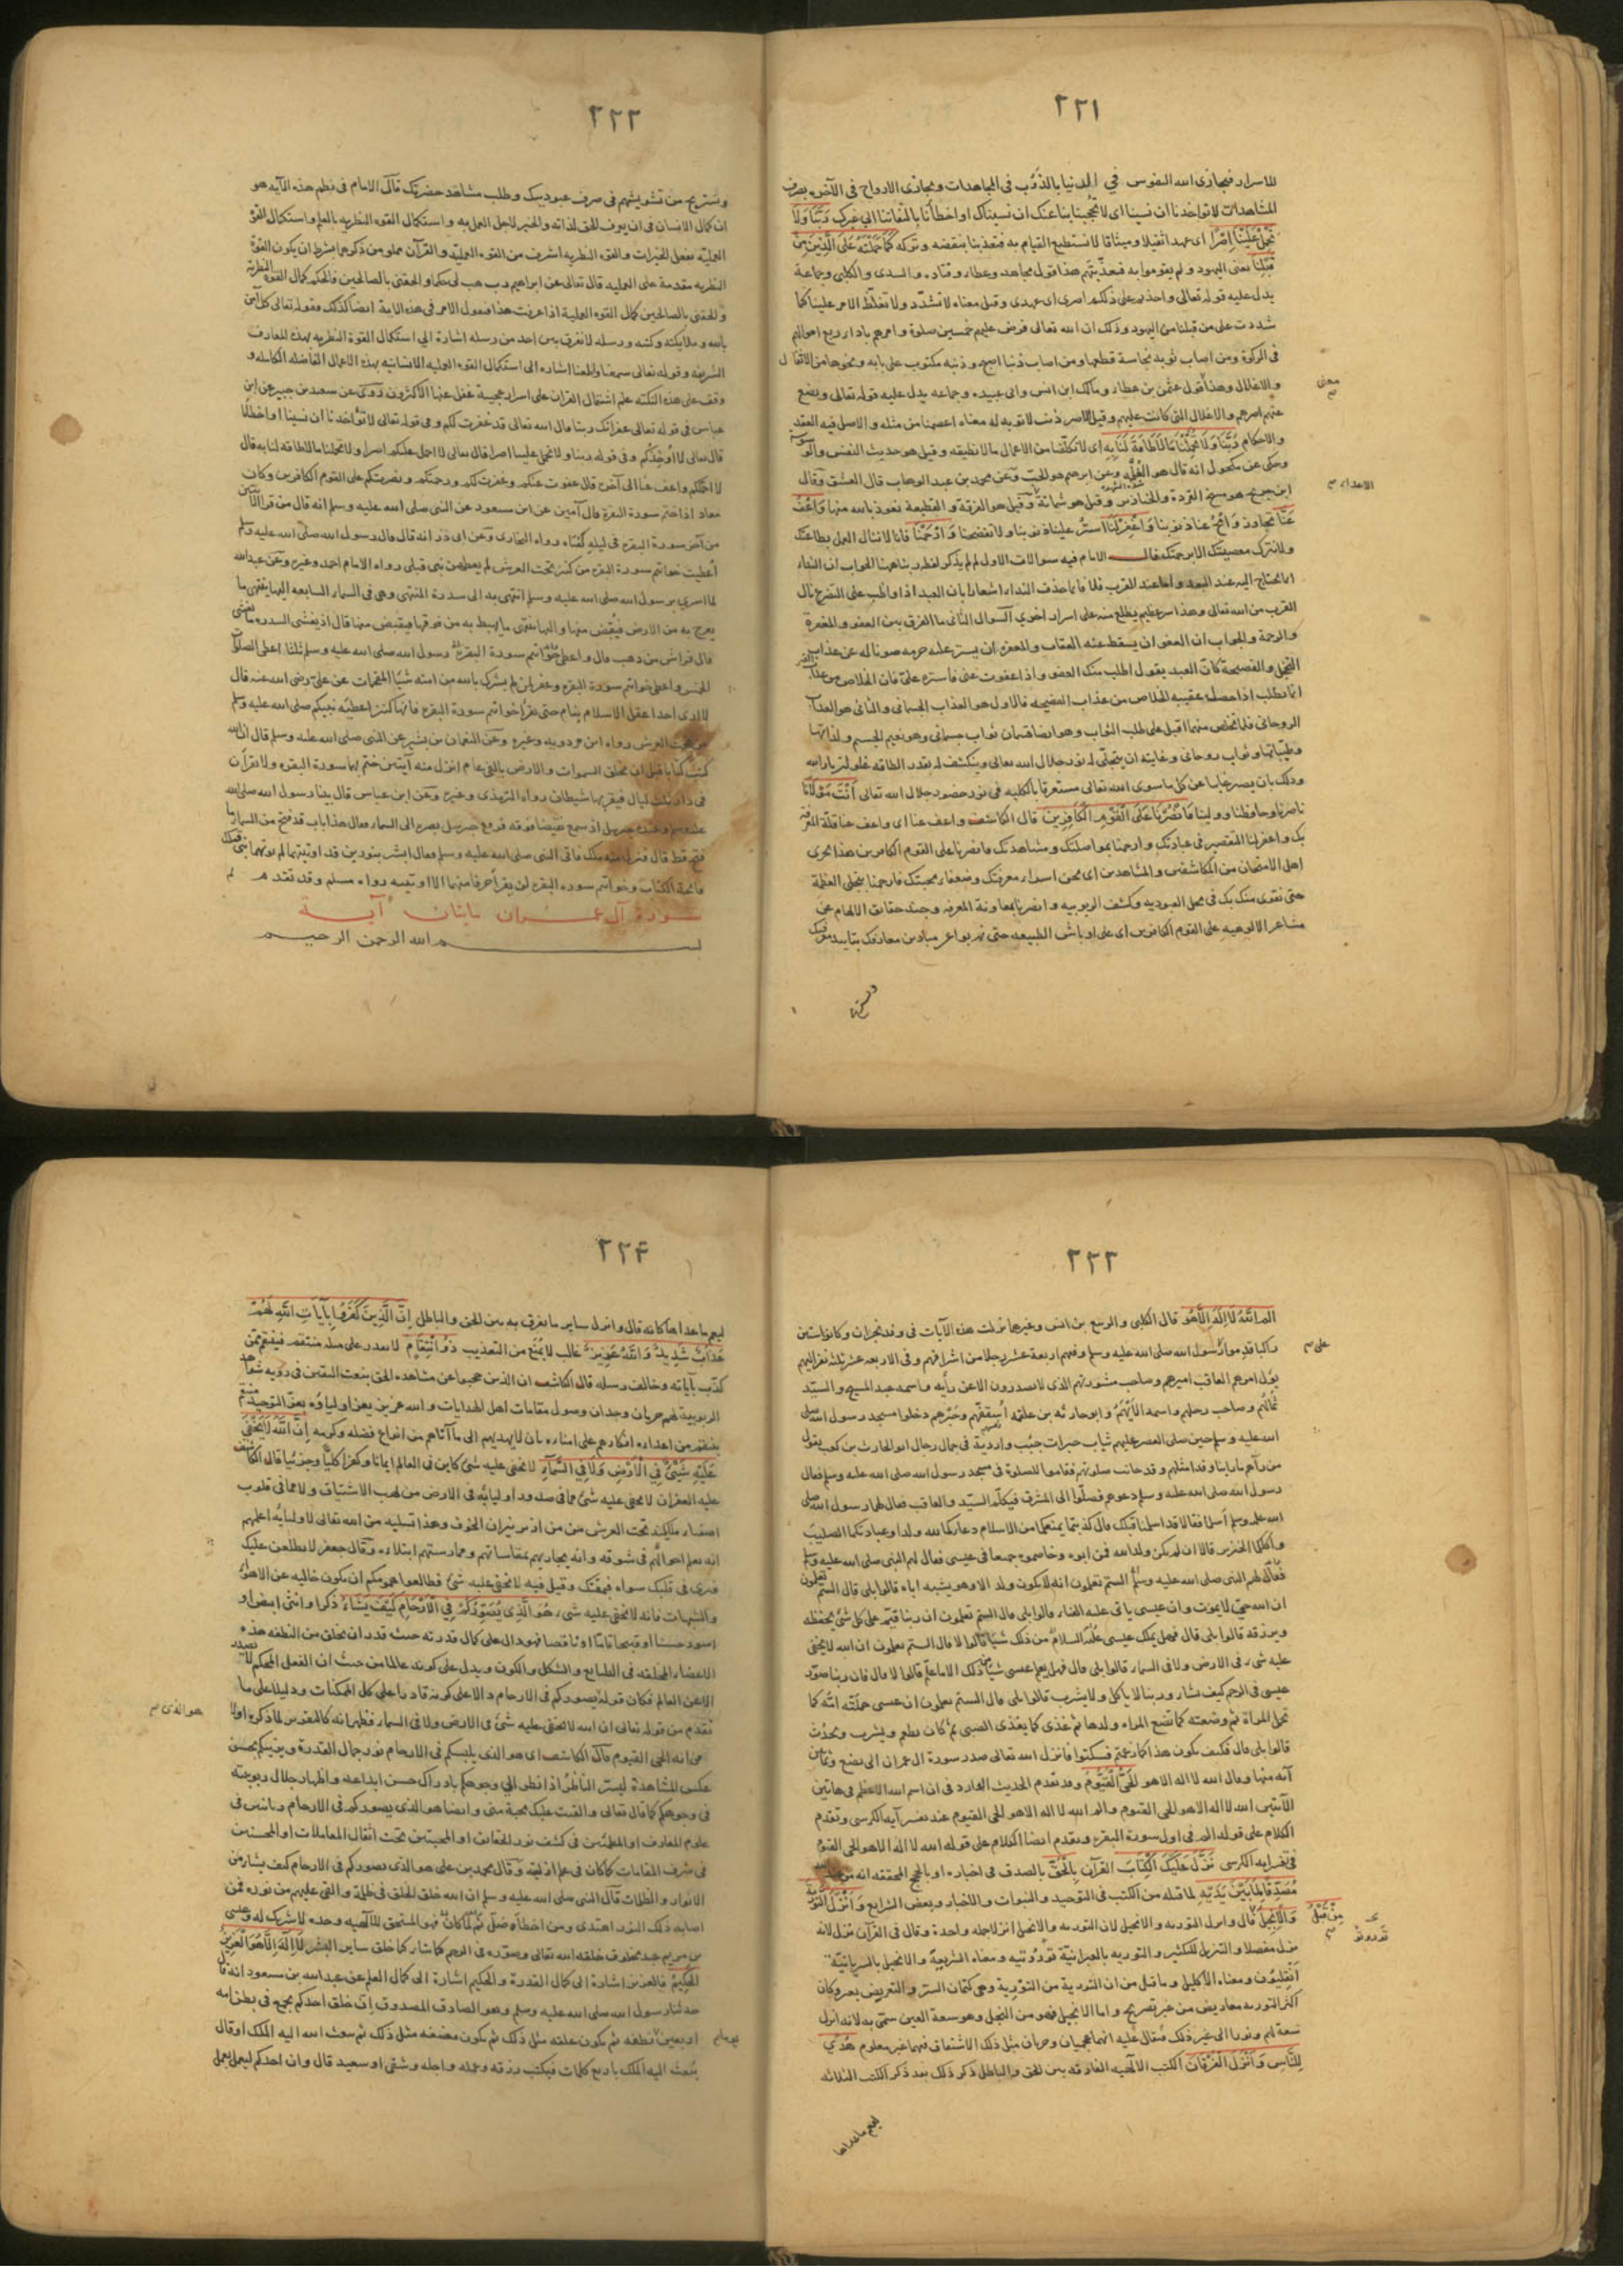 ٢٢١
للاسرار فيجازى الله النفوس في الدنيا بالذوب فى المجاهدات ويجازى الارواح فى الآخرة بصرف
المشاهدات لا تواخذنا ان نسينا اى لا تحجبنا بنا عنك ان نسيناك او اخطأنا بالتفاتنا الى غيرك رَبَّنَا وَلَا
تَحْمِلْ عَلَيْنَا اِصْرًا اى عهدا ثقيلا وميثاقا لا نستطيع القيام به فتعذبنا بنقضه وتركه كَمَا حَمَلْتَهُ عَلَى الَّذِينَ مِنْ
قَبْلِنَا يعنى اليهود ولم يقوموا به فعذبتهم هذا قول مجاهد وعطاء وقتادة والسدى والكلبى وجماعة
يدل عليه قوله تعالى واخذتم على ذلكم اصرى اى عهدى وقيل معناه لا تشدد ولا تغلظ الامر علينا كما
شددت على من قبلنا من اليهود وذلك ان الله تعالى فرض عليهم خمسين صلوة وامرهم باداء ربع اموالهم
فى الزكوة ومن اصاب ثوبه نجاسة قطعها ومن اصاب ذنبا اصبح وذنبه مكتوب على بابه ونحوها من الاثقال
والاغلال وهذا قول عثمن بن عطاء ومالك ابن انس وابى عبيده وجماعه يدل عليه قوله تعالى ويضع
معنى
عنهم اصرهم والاغلال التى كانت عليهم وقيل الاصر ذنب لا توبه له معناه اعصمنا من مثله والاصل فيه العقد
والاحكام رَبَّنَا وَلَا تُحَمِّلْنَا مَا لَا طَاقَةَ لَنَا بِهِ اى لا تكلفنا من الاعمال ما لا نطيقه وقيل هو حديث النفس والوسوسة
وحكى عن مكحول انه قال هو الغلمة وعن ابرهيم هو الحب وعن محمد بن عبد الوهاب قال العشق وقال
ابن جريج هو مسخ القردة والخنازير وقيل هو شماتة وقيل هو الفرقة والقطيعة نعوذ بالله منها وَاعْفُ
الاعداء
عَنَّا تجاوز وَامْحُ عنا ذنوبنا وَاغْفِرْ لَنَا استر علينا ذنوبنا ولا تفضحنا وَارْحَمْنَا فانا لا ننال العمل بطاعتك
ولا نترك معصيتك الا برحمتك قال الامام فيه سوالات الاول لم لم يذكر لفظ ربنا هنا الجواب ان النداء
انما يحتاج اليه عند البعد واما عند القرب فلا فانما حذف النداء اشعارا بان العبد اذا واظب على التضرع نال
القرب من الله تعالى وهذا سر عظيم يطلع منه على اسرار اخرى السوال الثانى ما الفرق بين العفو والمغفرة
والرحمة والجواب ان العفو ان يسقط عنه العقاب والمغفرة ان يستر عليه جرمه صونا له عن عذاب
التخجيل والفضيحة كان العبد يقول اطلب منك العفو واذا عفوت عنى فاستره على فان الخلاص من عذاب
انما يطلب اذا حصل عقيبه الخلاص من عذاب الفضيحة فالاول هو العذاب الجسمانى والثانى هو العذاب
الروحانى فلما تخلص منهما اقبل على طلب الثواب وهو ايضا قسمان ثواب جسمانى وهو نعيم الجسم ولذاتها
وطيباتها وثواب روحانى وغايته ان يتجلى له نور جلال الله تعالى وينكشف له بقدر الطاقه
وذلك بان يصير غايبا عن كل ما سوى الله تعالى مستغرقا بالكليه فى نور حضور جلال الله تعالى اَنْتَ مَوْلَانَا
ناصرنا وحافظنا وولينا فَانْصُرْنَا عَلَى الْقَوْمِ الْكَافِرِينَ قال الكاشف واعف عنا اى واعف عنا قلة المعرفة
بك واغفر لنا التقصير فى عبادتك وارحمنا بمواصلتك ومشاهدتك فانصرنا على القوم الكافرين هذا يجرى
اهل الامتحان من المكاشفين والمشاهدين اى نحن اسراء معرفتك وضعفاء محبتك فارحمنا بتجلى العظمة
حتى نقوى منك بك فى محل العبوديه وكشف الربوبيه وانصرنا بمعاونة المعرفه وجند حقايق الالهام عن
مشاعر الالوهيه على القوم الكافرين اى على اوباش الطبيعه حتى نهربوا عن ميادين معارفك بتاييد معرفتك
٢٢٢
ونستريح من تشويشهم فى صرف عبوديتك وطلب مشاهد حضرتك قال الامام فى نظم هذه الآيه هو
ان كمال الانسان فى ان يعرف الحق لذاته والخير لاجل العمل به واستكمال القوه النظريه بالعلم واستكمال القوة
العمليه بفعل الخيرات والقوه النظريه اشرف من القوه العمليه والقرآن مملو من ذكرهما بشرط ان يكون القوة
النظريه مقدمة على العمليه قال تعالى عن ابراهيم رب هب لى حكما والحقنى بالصالحين فالحكم كمال القوة النظرية
والحقنى بالصالحين كمال القوه العملية اذا عرفت هذا فنقول الامر فى هذه الاية ايضا كذلك فقوله تعالى كل آمن
بالله وملايكته وكتبه ورسله لا نفرق بين احد من رسله اشارة الى استكمال القوة النظريه بهذه المعارف
الشريفه وقوله تعالى سمعنا واطعنا اشاره الى استكمال القوه العمليه الانسانيه بهذه الاعمال الفاضله الكامله و
وقف على هذه النكته علم اشتمال القران على اسرار عجيبة غفل عنها الاكثرون وروى عن سعيد بن جبير عن ابن
عباس فى قوله تعالى غفرانك ربنا قال الله تعالى قد غفرت لكم وفى قوله تعالى لا تواخذنا ان نسينا او اخطأنا
قال تعالى لا أؤاخذكم وفى قوله ربنا ولا تحمل علينا اصرا قال تعالى لا احمل عليكم اصرا ولا تحملنا ما لا طاقه لنا به قال
لا احملكم واعف عنا الى آخره قال عفوت عنكم وغفرت لكم ورحمتكم ونصرتكم على القوم الكافرين وكان
معاذ اذا ختم سورة البقرة قال آمين عن ابن مسعود عن النبى صلى الله عليه وسلم انه قال من قرأ الآيتين
من آخر سورة البقره فى ليلة كفتاه رواه البخارى وعن ابى ذر انه قال قال رسول الله صلى الله عليه وسلم
أعطيت خواتيم سورة البقره من كنز تحت العرش لم يعطهن نبى قبلى رواه الامام احمد وغيره وعن عبد الله
لما اسرى برسول الله صلى الله عليه وسلم انتهى به الى سدرة المنتهى وهى فى السماء السابعه اليها ينتهى ما
يعرج به من الارض فيقبض منها واليها ينتهى ما يهبط به من فوقها فيقبض منها قال اذ يغشى السدره ما يغشى
قال فراش من ذهب قال واعطى خواتيم سورة البقرة رسول الله صلى الله عليه وسلم ثلثا اعطى الصلوات
الخمس واعطى خواتيم سورة البقره وغفر لمن لم يشرك بالله من امته شيئا المقحمات عن على رضى الله عنه قال
لا ارى احدا عقل الاسلام ينام حتى يقرأ خواتيم سورة البقره فانها كنز اعطيه نبيكم صلى الله عليه وسلم
من تحت العرش رواه ابن مردويه وغيره وعن النعمان بن بشير عن النبى صلى الله عليه وسلم قال ان الله
كتب كتابا قبل ان يخلق السموات والارض بالفى عام انزل منه آيتين ختم بهما سورة البقره ولا تقرآن
فى دار ثلث ليال فيقربها شيطان رواه الترمذى وغيره وعن ابن عباس قال بينا رسول الله صلى الله
عليه وسلم وعنده جبريل اذ سمع نقيضا فوقه فرفع جبريل بصره الى السماء فقال هذا باب قد فتح من السماء ما
فتح قط قال فنزل منه ملك فاتى النبى صلى الله عليه وسلم فقال ابشر بنورين قد اوتيتهما لم يوتهما نبى قبلك
فاتحة الكتاب وخواتيم سوره البقره لن يقرأ حرفا منهما الا اوتيته رواه مسلم وقد تقدم
سورة آل عمران مايتان آية
بسم الله الرحمن الرحيم
٢٢٣
الم اللَّهُ لَا اِلَهَ اِلَّا هُوَ قال الكلبى والربيع بن انس وغيرهما نزلت هذه الآيات فى وفد نجران وكانوا ستين
راكبا قدموا رسول الله صلى الله عليه وسلم وفيهم اربعة عشر رجلا من اشرافهم وفى الاربعه عشر ثلثه نفر اليهم
على
يؤل امرهم العاقب اميرهم وصاحب مشورتهم الذى لا يصدرون الا عن رأيه واسمه عبد المسيح والسيد
ثمالهم وصاحب رحلهم واسمه الايهم وابو حارثه بن علقمه اسقفهم وحبرهم دخلوا مسجد رسول الله صلى
الله عليه وسلم حين صلى العصر عليهم ثياب حبرات جبب واردية فى جمال رجال ابو الحارث بن كعب يقول
من رآهم ما راينا وفدا مثلهم وقد حانت صلوتهم فقاموا للصلوة فى مسجد رسول الله صلى الله عليه وسلم فقال
رسول الله صلى الله عليه وسلم دعوهم فصلوا الى المشرق فيكلم السيد والعاقب فقال لهما رسول الله صلى
الله عليه وسلم أسلما فقالا قد اسلمنا قبلك قال كذبتما يمنعكما من الاسلام دعاؤكما لله ولدا وعبادتكما الصليب
واكلكما الخنزير قالا ان لم يكن ولد الله فمن ابوه وخاصموه جميعا فى عيسى فقال لهم النبى صلى الله عليه وسلم
فقال لهم النبى صلى الله عليه وسلم الستم تعلمون انه لا يكون ولد الا وهو يشبه اباه قالوا بلى قال الستم تعلمون
ان الله حى لا يموت وان عيسى ياتى عليه الفناء قالوا بلى قال الستم تعلمون ان ربنا قيم على كل شئ يحفظه
ويرزقه قالوا بلى قال فهل يملك عيسى عليه السلام من ذلك شيئا قالوا لا قال الستم تعلمون ان الله لا يخفى
عليه شىء فى الارض ولا فى السماء قالوا بلى قال فهل يعلم عيسى شيئا من ذلك الا ما علم قالوا لا قال فان ربنا صور
عيسى فى الرحم كيف شاء وربنا لا ياكل ولا يشرب قالوا بلى قال الستم تعلمون ان عيسى حملته امه كما
تحمل المرأة ثم وضعته كما تضع المراه ولدها ثم غذى كما يغذى الصبى ثم كان يطعم ويشرب ويحدث
قالوا بلى قال فكيف يكون هذا كما زعمتم فسكتوا فانزل الله تعالى صدر سورة ال عمران الى بضع وثمانين
آيه منها وقال الله لا اله الا هو الْحَىُّ الْقَيُّومُ وقد تقدم الحديث الوارد فى ان اسم الله الاعظم فى هاتين
الآيتين الله لا اله الا هو الحى القيوم والم الله لا اله الا هو الحى القيوم عند تفسير آيه الكرسى وتقدم
الكلام على قوله الم فى اول سورة البقره وتقدم ايضا الكلام على قوله الله لا اله الا هو الحى القيوم
فى تفسير ايه الكرسى نَزَّلَ عَلَيْكَ الْكِتَابَ القرآن بِالْحَقِّ بالصدق فى اخباره او بالحجج المحققه انه من عند الله
مُصَدِّقًا لِمَا بَيْنَ يَدَيْهِ لما قبله من الكتب فى التوحيد والنبوات والاخبار وبعض الشرايع وَاَنْزَلَ التَّوْرِيةَ
وَالْاِنْجِيلَ قال وانزل التوريه والانجيل لان التوريه والانجيل انزلا جمله واحدة وقال فى القرآن نزل لانه
مِنْ قَبْلُ
تورونو
نزل مفصلا والتنزيل للتكثير والتوريه بالعبرانيّة توروتيه ومعناه الشريعة والانجيل بالسريانيّة
انقليون ومعناه الاكليل وما قيل من ان التورية من التورية وهى كتمان السر والتعريض بغيره وكان
اكثر التوريه معاريض من غير تصريح واما الانجيل فهو من النجل وهو سعة العين سمى به لانه انزل
سعة لهم ونورا الى غير ذلك فيقال عليه انهما عجميان وجريان مثل ذلك الاشتقاق فيهما غير معلوم هُدًى
لِلنَّاسِ وَاَنْزَلَ الْفُرْقَانَ الكتب الالهيه الفارقه بين الحق والباطل ذكر ذلك بعد ذكر الكتب الثلاثه
ليعم ما عداها
٢٢٤
ليعم ما عداها كانه قال وانزل ساير ما يفرق به بين الحق والباطل اِنَّ الَّذِينَ كَفَرُوا بِآيَاتِ اللَّهِ لَهُمْ
عَذَابٌ شَدِيدٌ وَاللَّهُ عَزِيزٌ غالب لا يمنع من التعذيب ذُو انْتِقَامٍ لا يقدر على مثله منتقم فينتقم ممن
كذب بآياته وخالف رسله قال الكاشف ان الذين حجبوا عن مشاهده الحق بنعت اليقين فى رؤيه شواهد
الربوبية لهم حرمان وجدان وصول مقامات اهل الهدايات والله عزيز يعز اولياؤه بعز التوحيد منتقم
ينتقم من اعدائه انكارهم على امنائه بان لا يهديهم الى ما آتاهم من انواع فضله وكرمه اِنَّ اللَّهَ لَا يَخْفَى
عَلَيْهِ شَيْءٌ فِي الْاَرْضِ وَلَا فِي السَّمَاءِ لا يخفى عليه شئ كاين فى العالم ايمانا وكفرا كليا وجزئيا قال الكاشف
عليه الغفران لا يخفى عليه شئ مما فى صدور اوليائه فى الارض من لهب الاشتياق ولا مما فى قلوب
اصفياء ملائكته تحت العرش من من اثر نيران الخوف وهذا تسليه من الله تعالى لاوليائه اعلمهم
انه يعلم احوالهم فى شوقه وانه يجازيهم بمقاساتهم وممارستهم ابتلاءه وقال جعفر لا يطلعن عليك
فيرى فى قلبك سواه فيمقتك وقيل فيه لا يخفى عليه شئ فطالعوا همومكم ان يكون خاليه عن الاهواء
والشبهات فانه لا يخفى عليه شىء هُوَ الَّذِي يُصَوِّرُكُمْ فِي الْاَرْحَامِ كَيْفَ يَشَاءُ ذكرا وانثى ابيض او
اسود حسنا او قبيحا تاما او ناقصا فهو دال على كمال قدرته حيث قدر ان يخلق من النطفه هذه
الاعضاء المختلفه فى الطبايع والشكل والكون ويدل على كونه عالما من حيث ان الفعل المحكم لا يصدر
الا عن العالم فكان قوله يصوركم فى الارحام دالا على كونه قادرا على كل الممكنات ودليلا على ما
هو الذى
تقدم من قوله تعالى ان الله لا يخفى عليه شئ فى الارض ولا فى السماء فظهر انه كالتقرير لما ذكره اولا
من انه الحى القيوم قال الكاشف اى هو الذى يلبسكم فى الارحام نور جمال القدرة ويزينكم بحسن
عكس المشاهدة ليستر الناظر اذا نظر الى وجوهكم بادراك حسن ابداعه واظهار جلال ربوبيته
فى وجوهكم كما قال تعالى والقيت عليك محبة منى وايضا هو الذى يصوركم فى الارحام
علوم المعارف او المطمئنين فى كشف نور الحقايق او المحبين تحت اثقال المعاملات او المحسنين
فى شرف المقامات كما كان فى علم ازليته وقال محمد بن على هو الذى يصوركم فى الارحام كيف يشاء من
الانوار والظلمات قال النبى صلى الله عليه وسلم ان الله خلق الخلق فى ظلمة والقى عليهم من نوره فمن
اصابه ذلك النور اهتدى ومن اخطأه ضل ثم لما كان فهو المستحق للآلهيه وحده لا شريك له وعيسى
بن مريم عبد مخلوق خلقه الله تعالى وصوره فى الرحم كما شاء كما خلق ساير البشر لَا اِلَهَ اِلَّا هُوَ الْعَزِيزُ
الْحَكِيمُ فالعزيز اشارة الى كمال القدرة والحكيم اشارة الى كمال العلم عن عبد الله بن مسعود انه قال
حدثنا رسول الله صلى الله عليه وسلم وهو الصادق المصدوق ان خلق احدكم يجمع فى بطن امه
اربعين نطفه ثم يكون علقه مثل ذلك ثم يكون مضغه مثل ذلك ثم يبعث الله اليه الملك او قال
يوما
يُبعث اليه الملك باربع كلمات فيكتب رزقه وعمله واجله وشقى او سعيد قال وان احدكم ليعمل بعمل